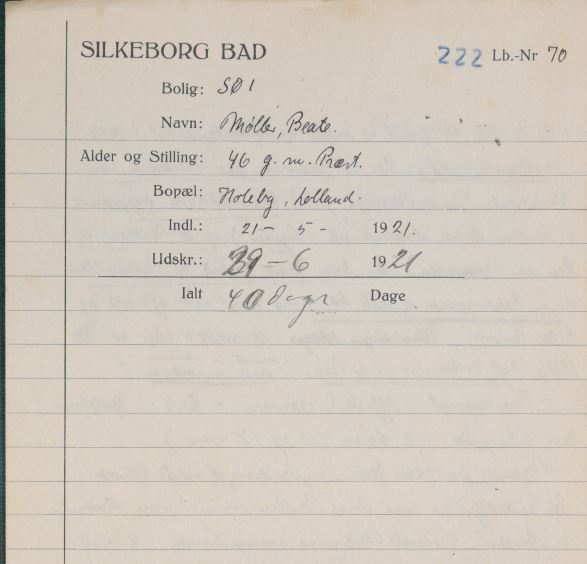 SILKEBORG BAD 222 Lb.-Nr 70
Bolig: SØ 1
Navn: Møller, Beate.
Alder og Stilling: 46 g. m. Præst.
Bopæl: Holeby, Lolland.
Indl.: 21 - 5 - 1921.
Udskr.: 29 - 6 1921
Ialt 40 dage Dage